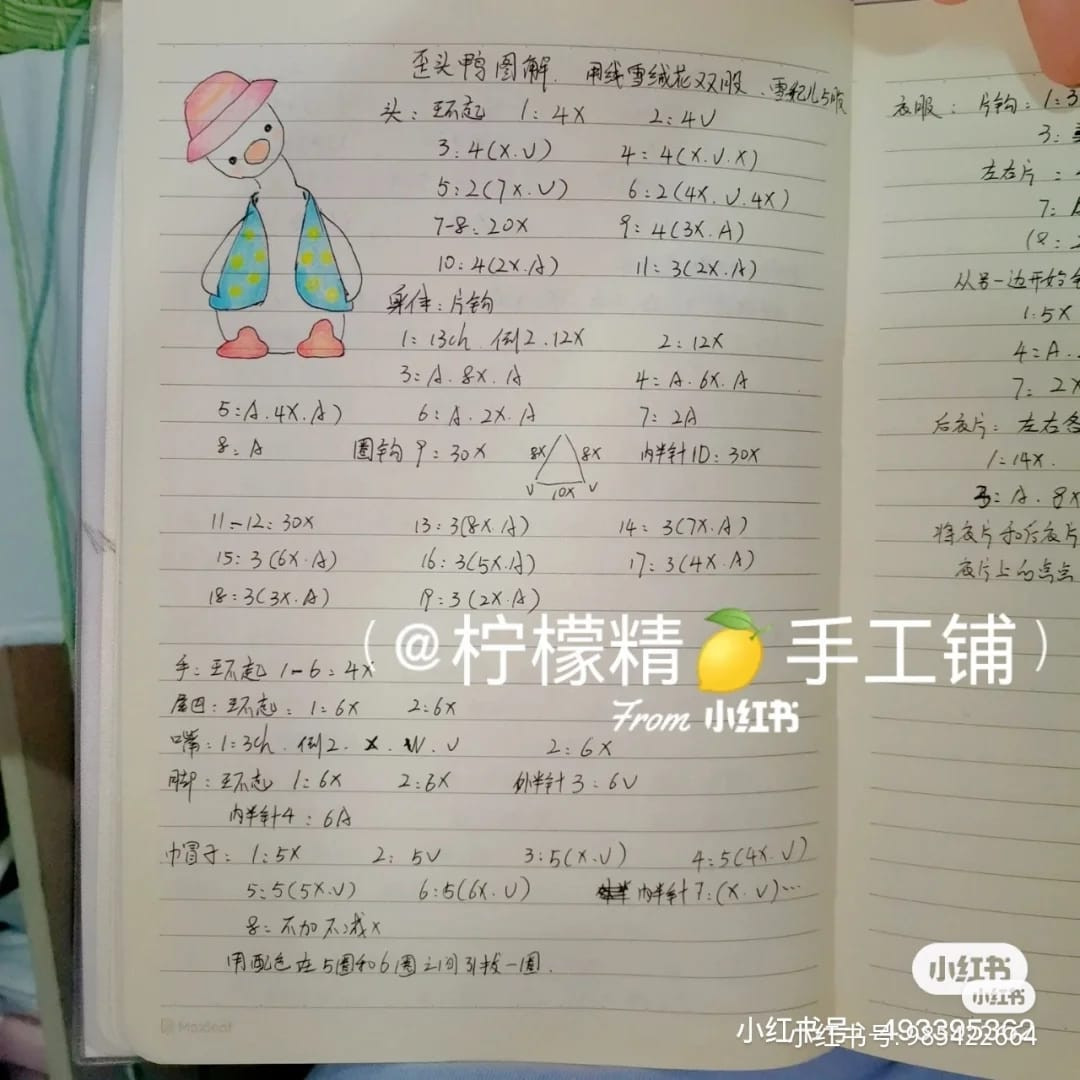 歪头鸭图解. 用线雪绒花双股、雪妃儿5股
头:环起 1:4X 2:4V
3:4(X.V) 4:4(X.V.X)
5:2(7X.V) 6:2(4X.V.4X)
7-8:20X 9:4(3X.A)
10:4(2X.A) 11:3(2X.A)
身体:片钩
1:13ch.倒2.12X 2:12X
3:A.8X.A 4:A.6X.A
5:A.4X.A) 6:A.2X.A 7:2A
8:A 圈钩9:30X 8X 8X V 10X V 内半针10:30X
11-12:30X 13:3(8X.A) 14:3(7X.A)
15:3(6X.A) 16:3(5X.A) 17:3(4X.A)
18:3(3X.A) 19:3(2X.A)
手:环起 1-6:4X
尾巴:环起. 1:6X 2:6X
嘴:1:3ch.倒2. X.W.V 2:6X
脚:环起 1:6X 2:6X 外半针3:6V
内半针4:6A
巾帽子:1:5X 2:5V 3:5(X.V) 4:5(4X.V)
5:5(5X.V) 6:5(6X.V) 内半针7:(X.V)…
8:不加不减X
用配色在5圈和6圈之间引拔一圈.
衣服:片钩:1:3
3:
左右片:
7:A
(8:
从另一边开始
1:5X
4:A.
7:2X
后衣片:左右各
1:14X.
3:A.8X
将衣片和后衣片
衣片上的点点
(@柠檬精🍋手工铺)
From 小红书
小红书
小红书
小红书号:493395362
小红书号:985422664
Maxleaf